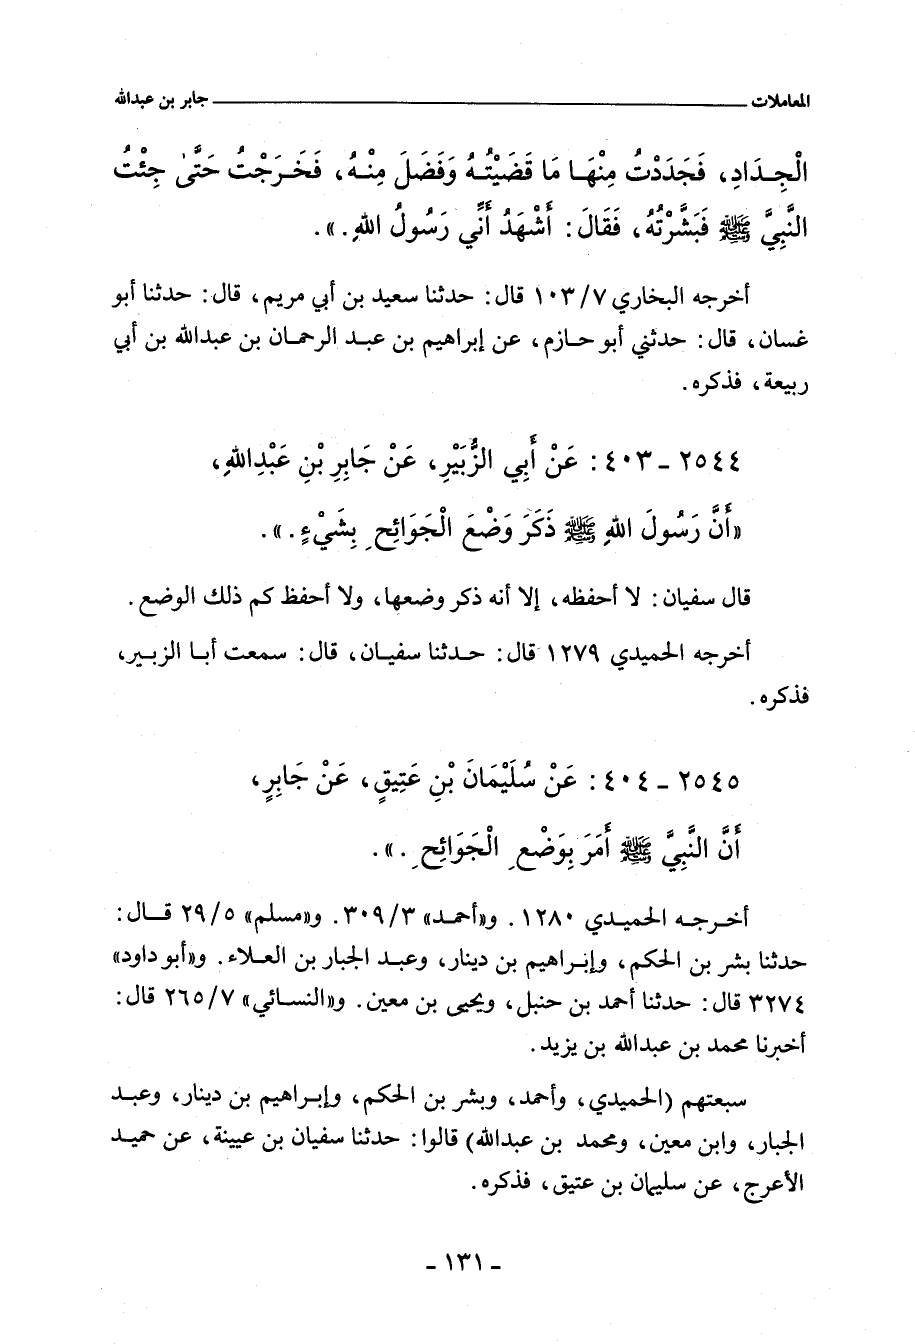 المعاملات ــــــــــــــــــــ جابر بن عبدالله
الْجِدَادِ، فَجَدَدْتُ مِنْهَا مَا قَضَيْتُهُ وَفَضَلَ مِنْهُ، فَخَرَجْتُ حَتَّىٰ جِئْتُ
النَّبِيَّ ﷺ فَبَشَّرْتُهُ، فَقَالَ: أَشْهَدُ أَنِّي رَسُولُ اللهِ.».
أخرجه البخاري ١٠٣/٧ قال: حدثنا سعيد بن أبي مريم، قال: حدثنا أبو
غسان، قال: حدثني أبو حازم، عن إبراهيم بن عبد الرحمان بن عبدالله بن أبي
ربيعة، فذكره.
٢٥٤٤ - ٤٠٣: عَنْ أَبِي الزُّبَيْرِ، عَنْ جَابِرِ بْنِ عَبْدِاللهِ،
«أَنَّ رَسُولَ اللهِ ﷺ ذَكَرَ وَضْعَ الْجَوَائِحِ بِشَيْءٍ.».
قال سفيان: لا أحفظه، إلا أنه ذكر وضعها، ولا أحفظ كم ذلك الوضع.
أخرجه الحميدي ١٢٧٩ قال: حدثنا سفيان، قال: سمعت أبا الزبير،
فذكره.
٢٥٤٥ - ٤٠٤: عَنْ سُلَيْمَانَ بْنِ عَتِيقٍ، عَنْ جَابِرٍ،
أَنَّ النَّبِيَّ ﷺ أَمَرَ بِوَضْعِ الْجَوَائِحِ.».
أخرجه الحميدي ١٢٨٠. و«أحمد» ٣٠٩/٣. و«مسلم» ٢٩/٥ قال:
حدثنا بشر بن الحكم، وإبراهيم بن دينار، وعبد الجبار بن العلاء. و«أبو داود»
٣٢٧٤ قال: حدثنا أحمد بن حنبل، ويحيى بن معين. و«النسائي» ٢٦٥/٧ قال:
أخبرنا محمد بن عبدالله بن يزيد.
سبعتهم (الحميدي، وأحمد، وبشر بن الحكم، وإبراهيم بن دينار، وعبد
الجبار، وابن معين، ومحمد بن عبدالله) قالوا: حدثنا سفيان بن عيينة، عن حميد
الأعرج، عن سليمان بن عتيق، فذكره.
- ١٣١ -